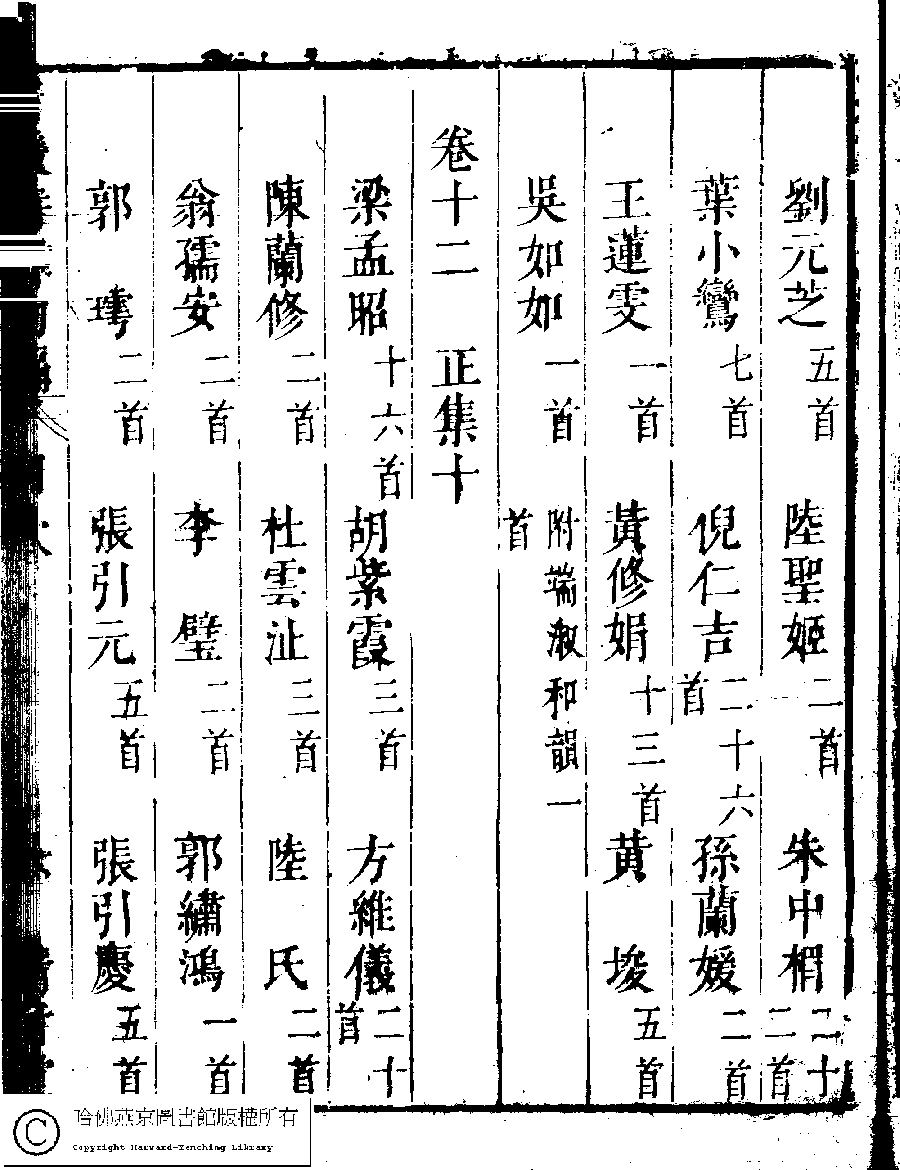 劉元芝 五首 陸聖姬 二首 朱中楣 二十二首
葉小鸞 七首 倪仁吉 二十六首 孫蘭媛 二首
王蓮雯 一首 黃修娟 十三首 黃埈 五首
吳如如 一首 附端淑和韻一首
卷十二 正集十
梁孟昭 十六首 胡紫霞 三首 方維儀 二十首
陳蘭修 二首 杜雲沚 三首 陸氏 二首
翁孺安 二首 李璧 二首 郭繡鴻 一首
郭 二首 張引元 五首 張引慶 五首
哈佛燕京圖書館版權所有
Copyright Harvard-Yenching Library